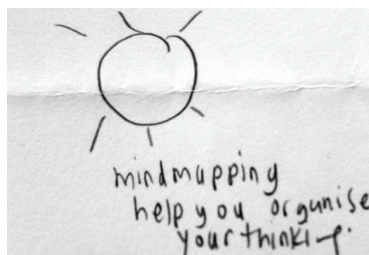 mindmapping
help you organise
your thinking.